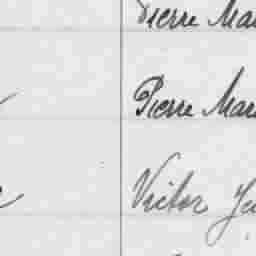 Pierre Mar
Pierre Mar
Victor Je